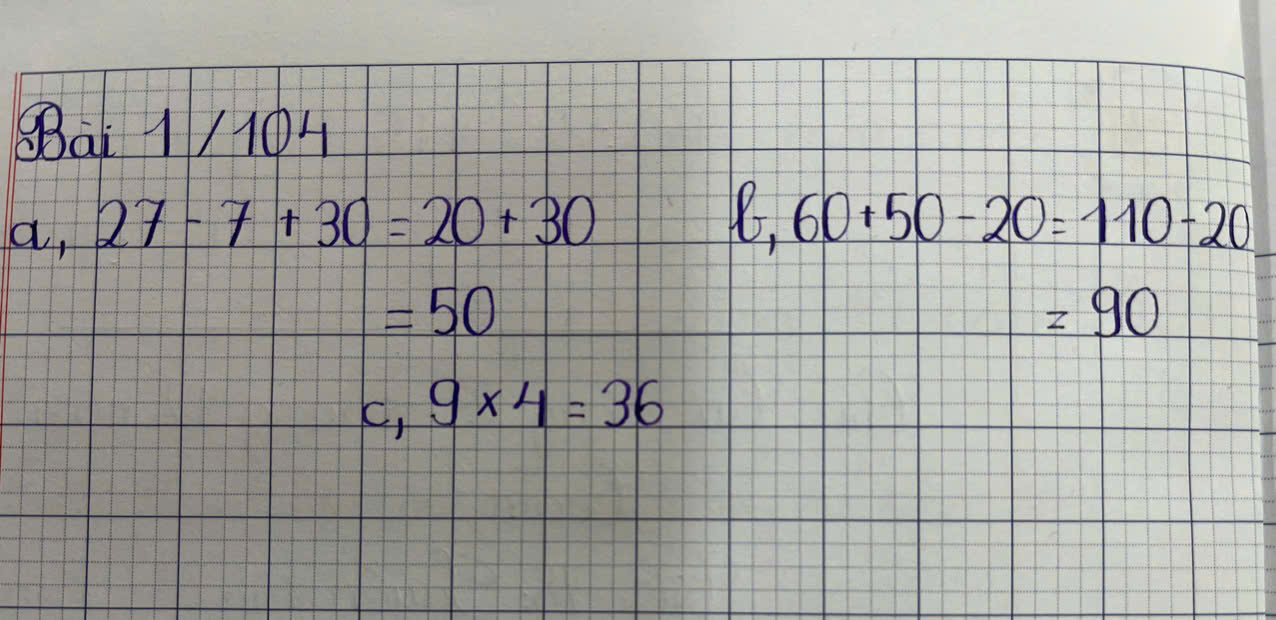 Bài 1 / 104
a, 27 - 7 + 30 = 20 + 30
= 50
b, 60 + 50 - 20 = 110 - 20
= 90
c, 9 × 4 = 36